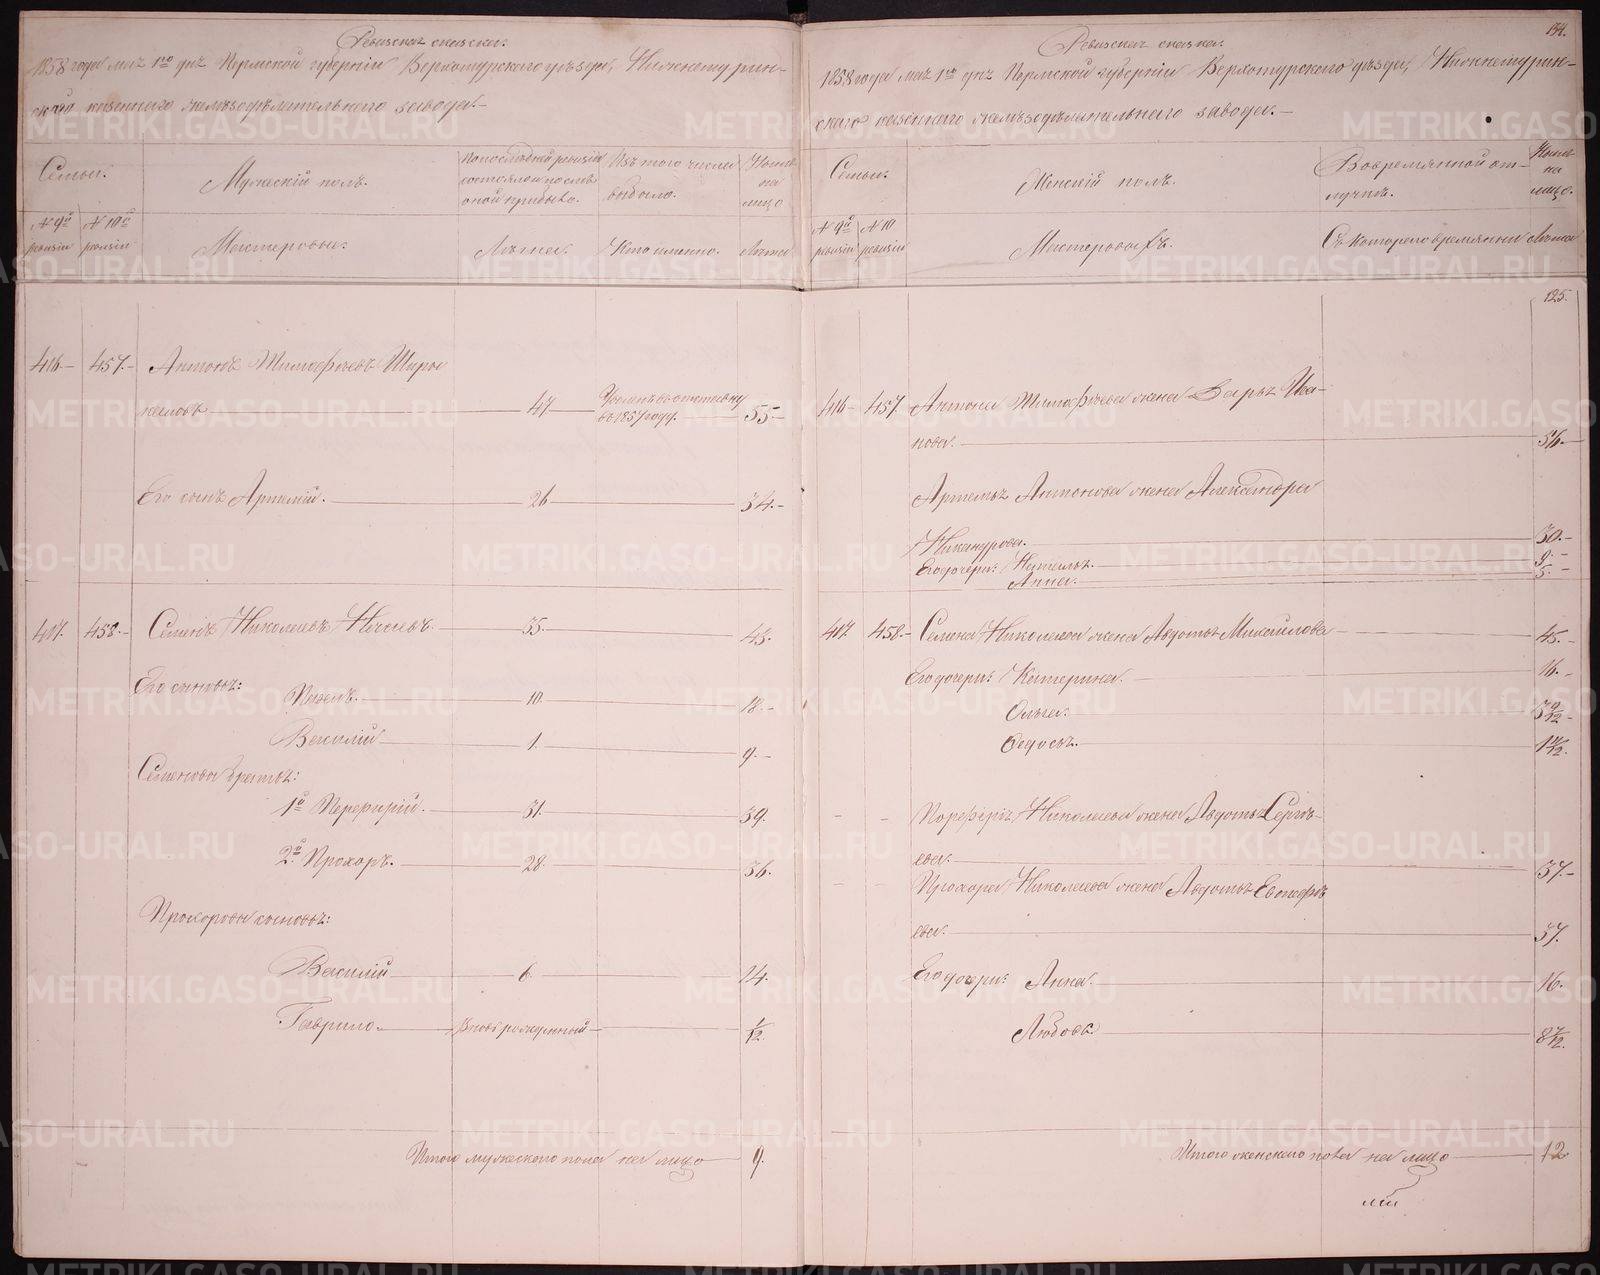 Ревизская сказка.
1858 года мая 1го дня Пермской губернiи Верхотурскаго уѣзда, Нижнетурин-
скаго казеннаго желѣзодѣлательнаго завода.-
Семьи.
Мужескiй полъ.
По последней ревизiи состояло и после оной прибыло.
Изъ того числа выбыло.
Ныне на лицо
№ 9й ревизiи
№ 10й ревизiи
Мастеровые.
Лѣта.
Кто именно.
Лѣта
416.- 457.- Антонъ Тимофѣевъ Широ
коловъ 47 Уволенъ въ отставку въ 1857 году. 55.-
Его сынъ Артемiй. 26 34.-
417. 458.- Семенъ Николаевъ 35. 43.
Его сыновья:
10. 18.-
Василiй 1. 9.-
Семеновы братья:
1й Перфирiй. 31. 39.
2й Прохоръ. 28. 36.
Прохоровы сыновья:
Василiй 6. 14.
Гаврило. Вновь рожденный 1/12.
Итого мужескаго пола на лицо 9.
134.
Ревизская сказка.
1858 года мая 1го дня Пермской губернiи Верхотурскаго уѣзда, Нижнетурин-
скаго казеннаго желѣзодѣлательнаго завода.-
Семьи.
Женскiй полъ.
Во временной от-
лучкѣ.
Ныне на лицо.
№ 9й ревизiи
№ 10 ревизiи
Съ котораго времянни
Лѣта
125.
416- 457. Антона Тимофѣева жена Дарья Ива-
нова. 56.-
Артемья Антонова жена Александра
Никанурова. 30.-
Его дочери: Наталья. 9.-
Анна. 5.-
417. 458.- Семена Николаева жена Авдотья Михайлова 45.-
Его дочери: Катерина. 16.-
Ольга. 3 9/12-
Ѳедосья.
Порфирiя Николаева жена Авдотья Сергѣ-
ева. 37.-
Прохора Николаева жена Авдотья
ева. 37.
Его дочери: Анна. 16.
Любовь. 8 7/12.
Итого женскаго пола на лицо 12